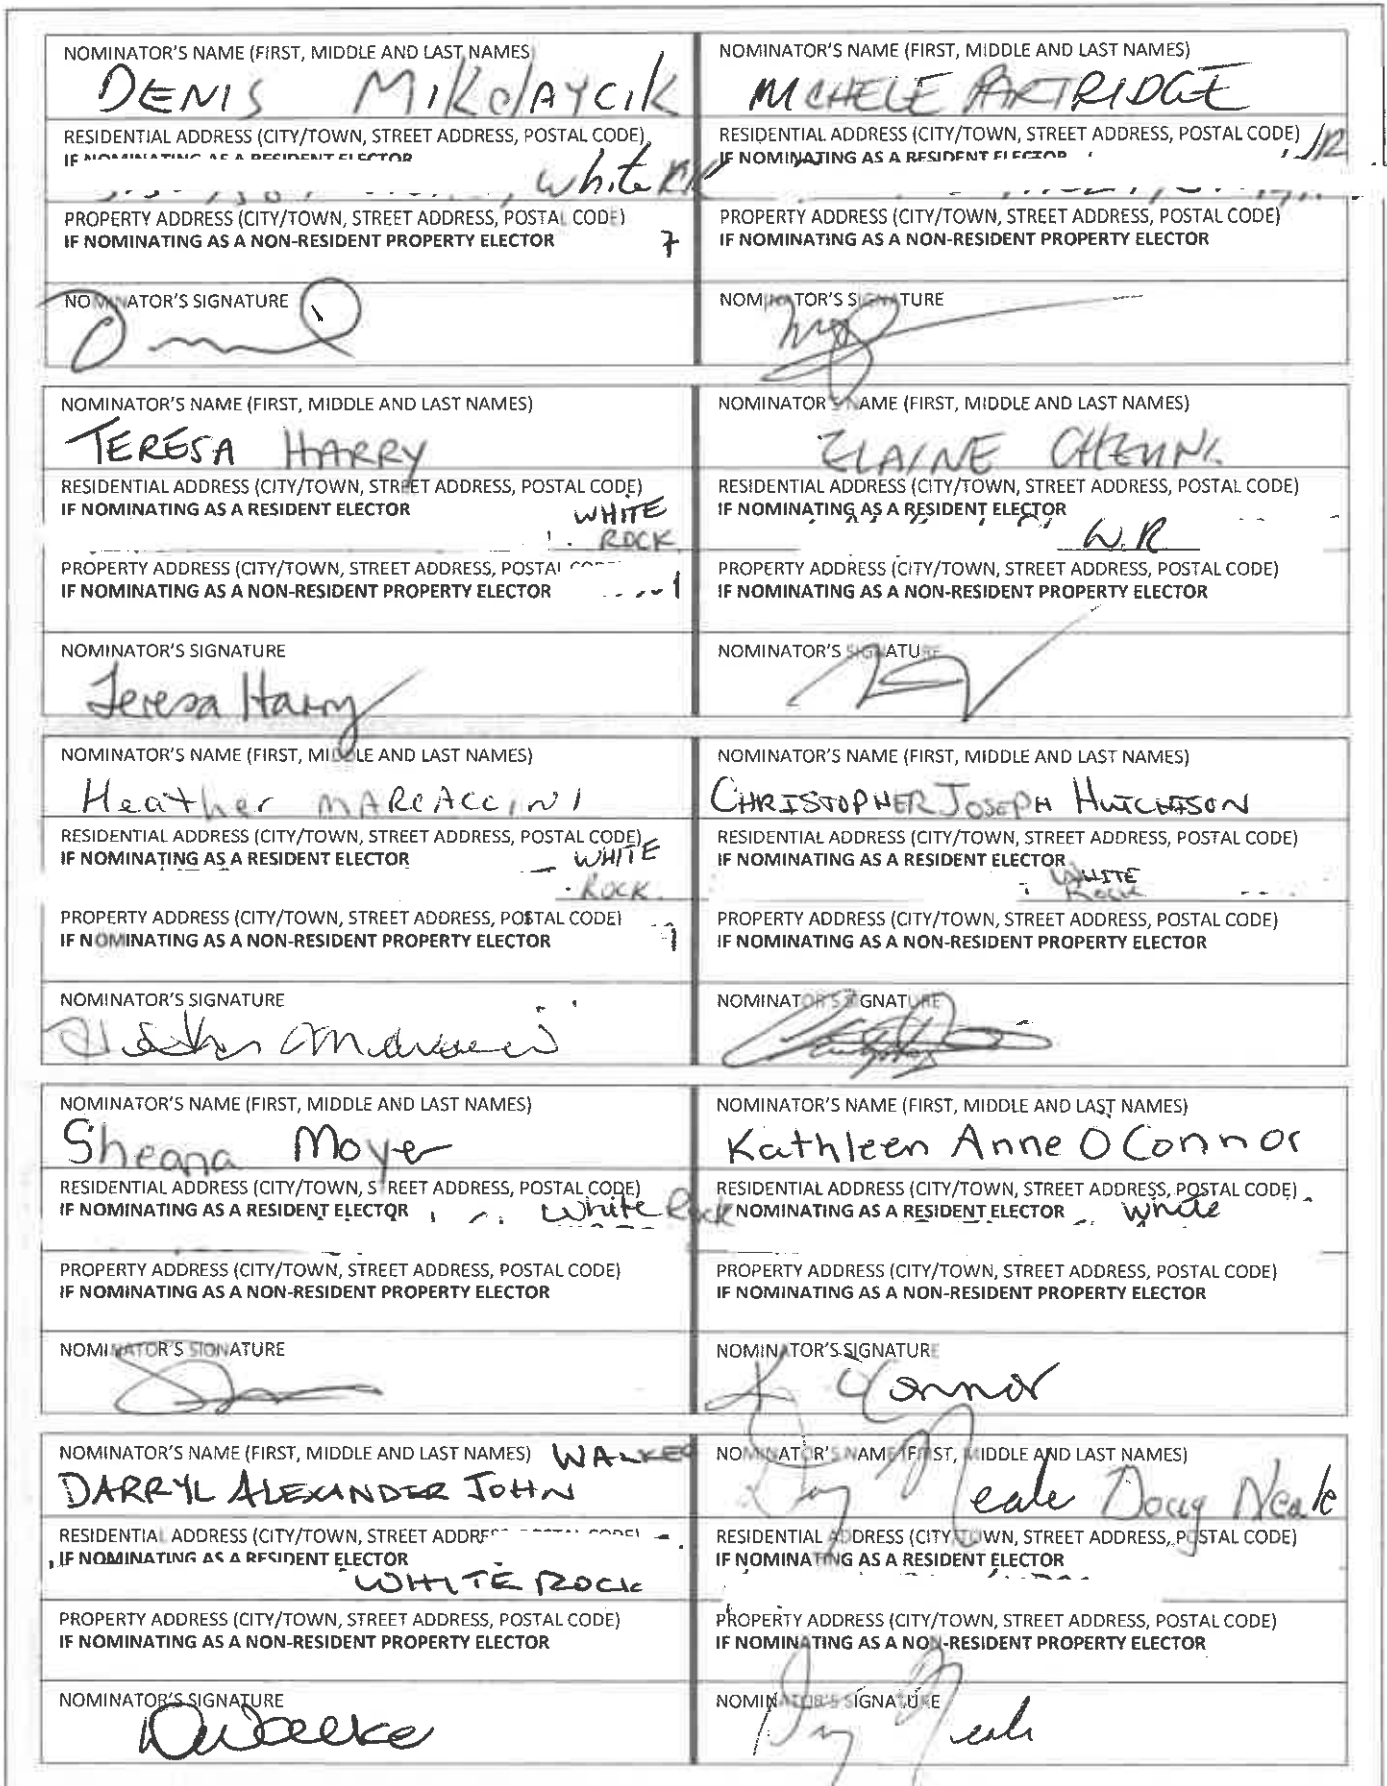 NOMINATOR'S NAME (FIRST, MIDDLE AND LAST NAMES)
DENIS MIKOLAYCIK
RESIDENTIAL ADDRESS (CITY/TOWN, STREET ADDRESS, POSTAL CODE)
IF NOMINATING AS A RESIDENT ELECTOR
White RK
PROPERTY ADDRESS (CITY/TOWN, STREET ADDRESS, POSTAL CODE)
IF NOMINATING AS A NON-RESIDENT PROPERTY ELECTOR
NOMINATOR'S SIGNATURE
NOMINATOR'S NAME (FIRST, MIDDLE AND LAST NAMES)
MCHELE PARTRIDGE
RESIDENTIAL ADDRESS (CITY/TOWN, STREET ADDRESS, POSTAL CODE)
IF NOMINATING AS A RESIDENT ELECTOR
PROPERTY ADDRESS (CITY/TOWN, STREET ADDRESS, POSTAL CODE)
IF NOMINATING AS A NON-RESIDENT PROPERTY ELECTOR
NOMINATOR'S SIGNATURE
NOMINATOR'S NAME (FIRST, MIDDLE AND LAST NAMES)
TERESA HARRY
RESIDENTIAL ADDRESS (CITY/TOWN, STREET ADDRESS, POSTAL CODE)
IF NOMINATING AS A RESIDENT ELECTOR
WHITE
ROCK
PROPERTY ADDRESS (CITY/TOWN, STREET ADDRESS, POSTAL
IF NOMINATING AS A NON-RESIDENT PROPERTY ELECTOR
NOMINATOR'S SIGNATURE
Teresa Harry
NOMINATOR'S NAME (FIRST, MIDDLE AND LAST NAMES)
ELAINE
RESIDENTIAL ADDRESS (CITY/TOWN, STREET ADDRESS, POSTAL CODE)
IF NOMINATING AS A RESIDENT ELECTOR
W.R
PROPERTY ADDRESS (CITY/TOWN, STREET ADDRESS, POSTAL CODE)
IF NOMINATING AS A NON-RESIDENT PROPERTY ELECTOR
NOMINATOR'S SIGNATURE
NOMINATOR'S NAME (FIRST, MIDDLE AND LAST NAMES)
Heather MARCACCINI
RESIDENTIAL ADDRESS (CITY/TOWN, STREET ADDRESS, POSTAL CODE)
IF NOMINATING AS A RESIDENT ELECTOR
WHITE
ROCK
PROPERTY ADDRESS (CITY/TOWN, STREET ADDRESS, POSTAL CODE)
IF NOMINATING AS A NON-RESIDENT PROPERTY ELECTOR
NOMINATOR'S SIGNATURE
NOMINATOR'S NAME (FIRST, MIDDLE AND LAST NAMES)
CHRISTOPHER JOSEPH HUTCHISON
RESIDENTIAL ADDRESS (CITY/TOWN, STREET ADDRESS, POSTAL CODE)
IF NOMINATING AS A RESIDENT ELECTOR
WHITE
ROCK
PROPERTY ADDRESS (CITY/TOWN, STREET ADDRESS, POSTAL CODE)
IF NOMINATING AS A NON-RESIDENT PROPERTY ELECTOR
NOMINATOR'S SIGNATURE
NOMINATOR'S NAME (FIRST, MIDDLE AND LAST NAMES)
Sheana Moyer
RESIDENTIAL ADDRESS (CITY/TOWN, STREET ADDRESS, POSTAL CODE)
IF NOMINATING AS A RESIDENT ELECTOR White Rock
PROPERTY ADDRESS (CITY/TOWN, STREET ADDRESS, POSTAL CODE)
IF NOMINATING AS A NON-RESIDENT PROPERTY ELECTOR
NOMINATOR'S SIGNATURE
NOMINATOR'S NAME (FIRST, MIDDLE AND LAST NAMES)
Kathleen Anne O Connor
RESIDENTIAL ADDRESS (CITY/TOWN, STREET ADDRESS, POSTAL CODE)
NOMINATING AS A RESIDENT ELECTOR White
PROPERTY ADDRESS (CITY/TOWN, STREET ADDRESS, POSTAL CODE)
IF NOMINATING AS A NON-RESIDENT PROPERTY ELECTOR
NOMINATOR'S SIGNATURE
K O'Connor
NOMINATOR'S NAME (FIRST, MIDDLE AND LAST NAMES) WALKER
DARRYL ALEXANDER JOHN
RESIDENTIAL ADDRESS (CITY/TOWN, STREET ADDRESS, POSTAL CODE)
IF NOMINATING AS A RESIDENT ELECTOR
WHITE ROCK
PROPERTY ADDRESS (CITY/TOWN, STREET ADDRESS, POSTAL CODE)
IF NOMINATING AS A NON-RESIDENT PROPERTY ELECTOR
NOMINATOR'S SIGNATURE
NOMINATOR'S NAME (FIRST, MIDDLE AND LAST NAMES)
Doug Neale Doug Neale
RESIDENTIAL ADDRESS (CITY/TOWN, STREET ADDRESS, POSTAL CODE)
IF NOMINATING AS A RESIDENT ELECTOR
PROPERTY ADDRESS (CITY/TOWN, STREET ADDRESS, POSTAL CODE)
IF NOMINATING AS A NON-RESIDENT PROPERTY ELECTOR
NOMINATOR'S SIGNATURE
Doug Neale